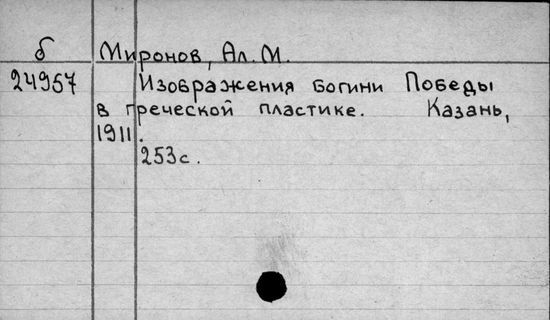 б Миронов, Ал. М.
24957 Изображения богини Победы
в греческой пластике. Казань,
1911.
253с.